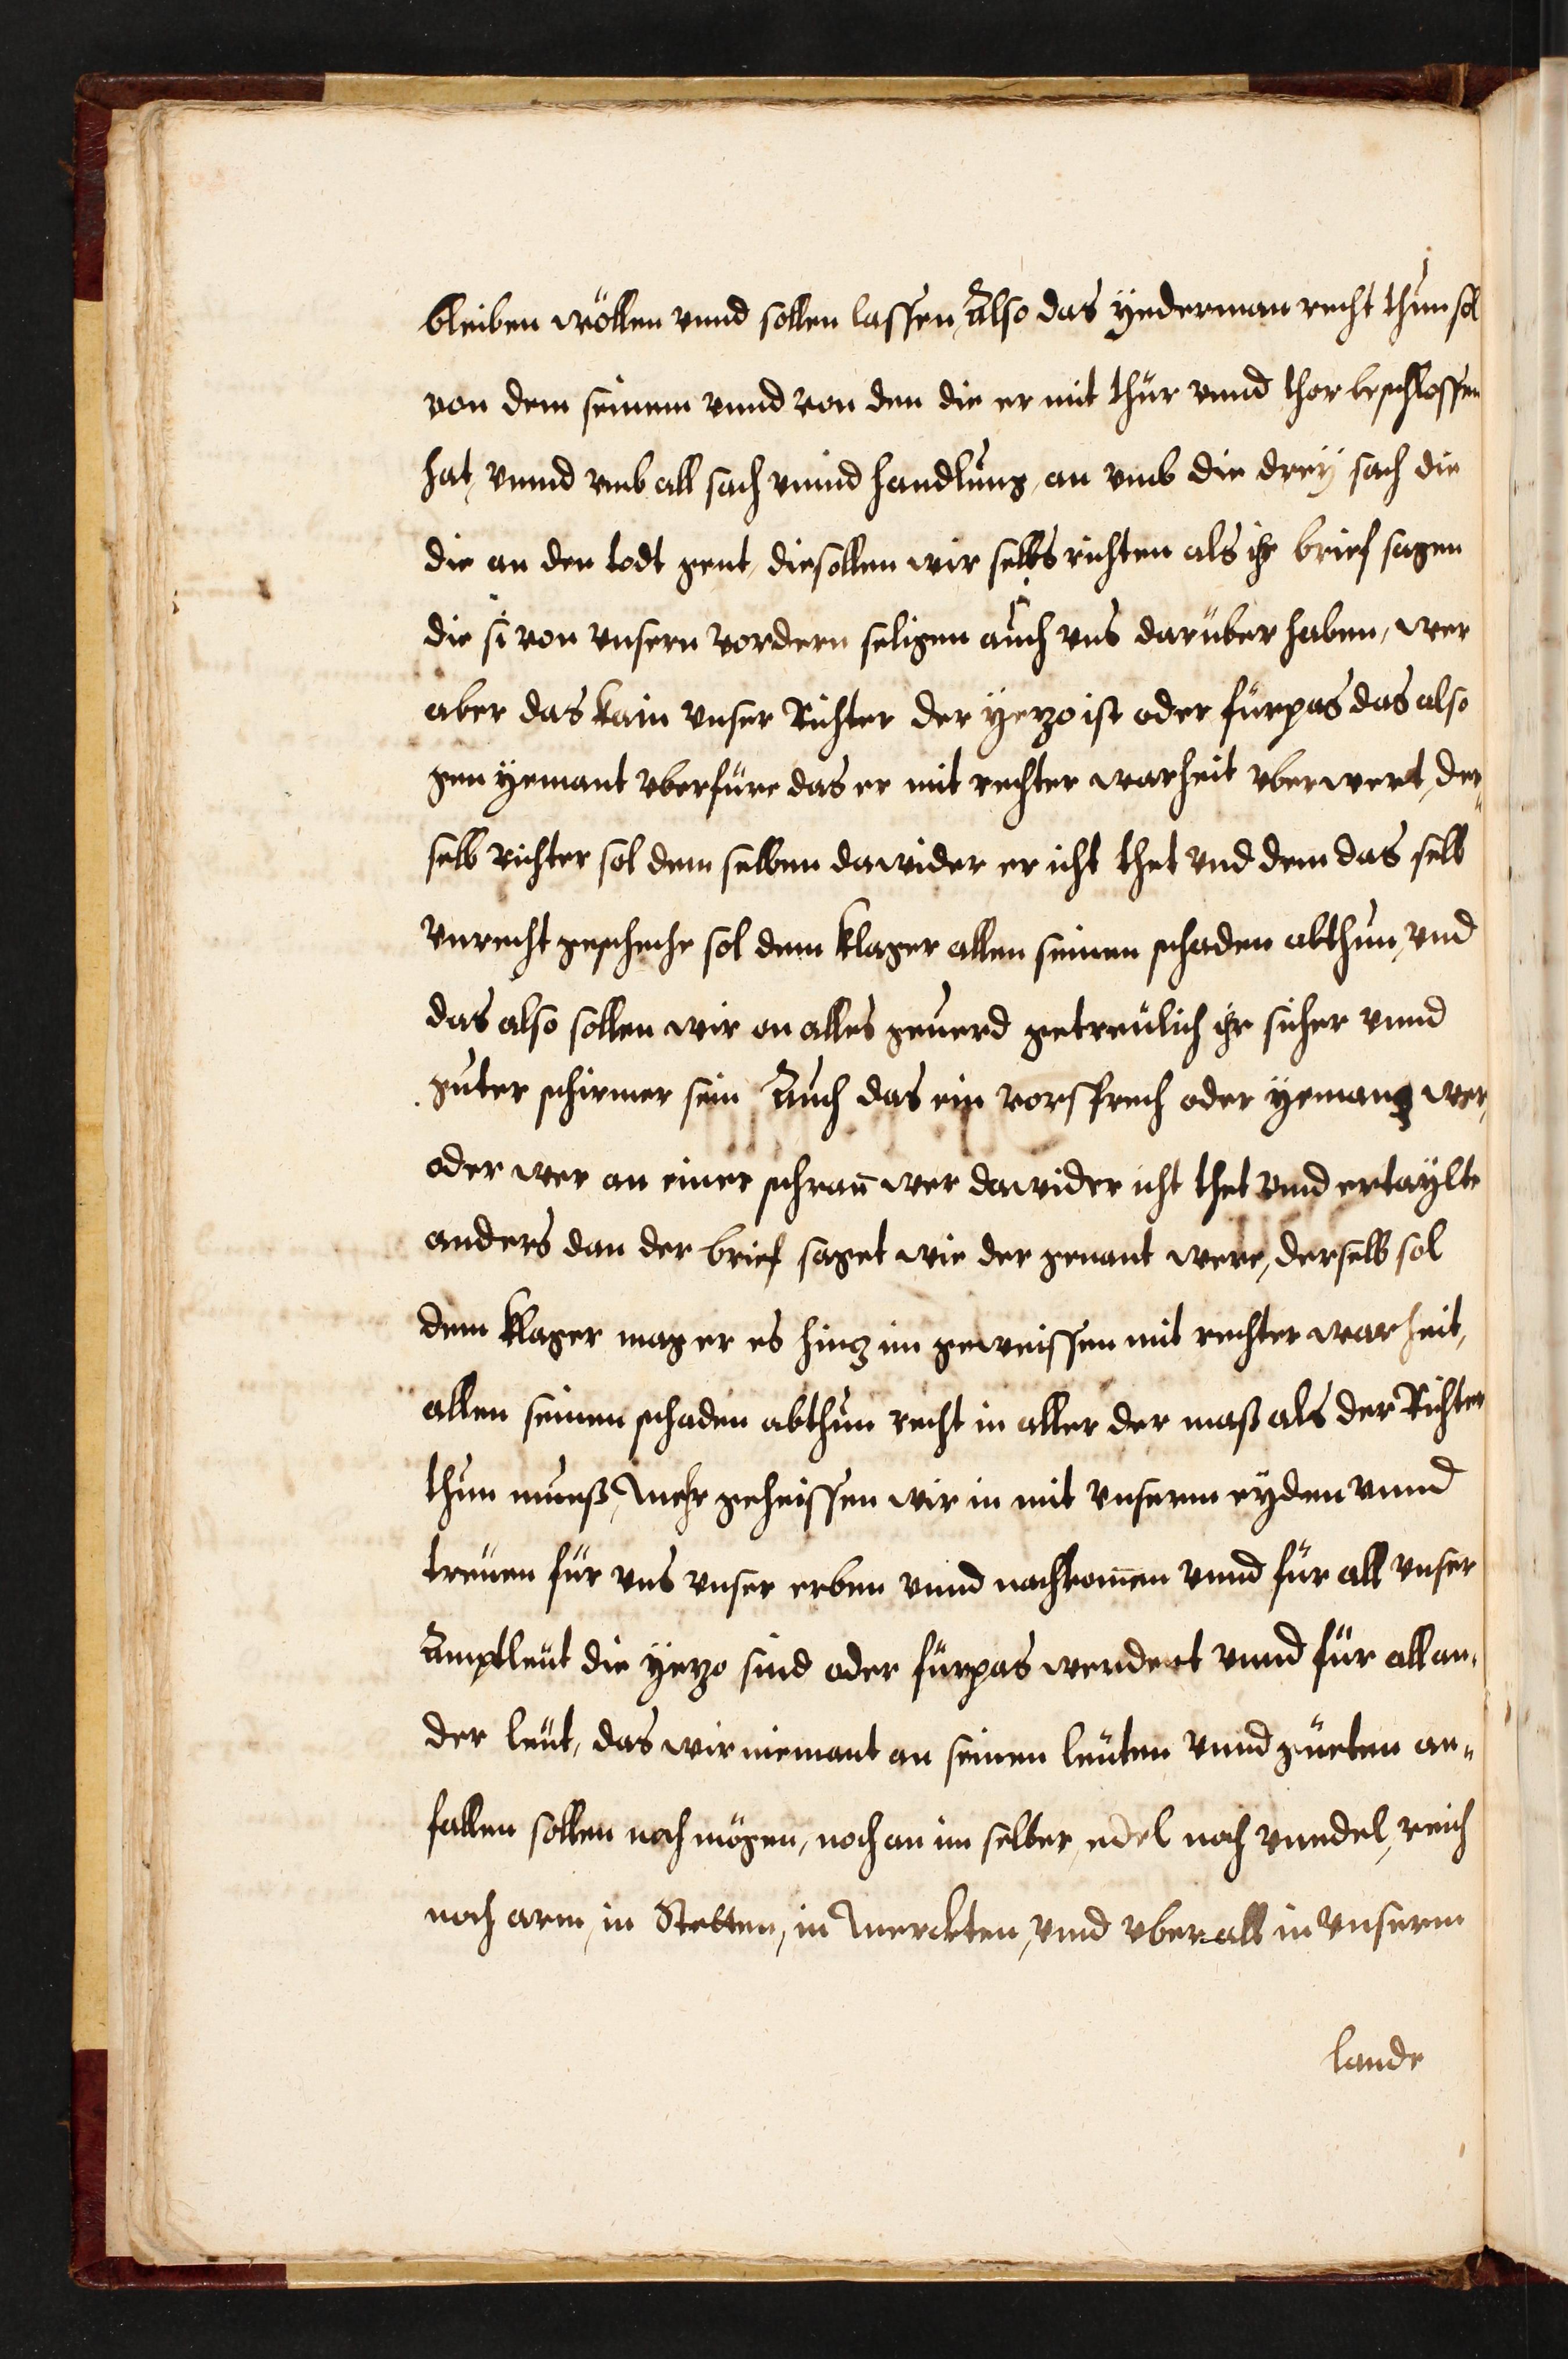 bleiben wöllen vnnd sollen lassen, Also das yederman recht thun sol
von dem seinem vnnd von den die er mit thür vnnd thor beschlossen
hat, vnnd vmb all sach vnnd handlung, an vmb die drey sach die
die an den todt gent, die sollen wir selbs richten als ir brief sagen
die si von vnsern vordern seligen auch vns darüber haben, wer
aber das kain vnser Richter der yezo ist oder fürpas das also
gen yemant vberfüre das er mit rechter warheit vberwert, der„
selb richter sol dem selben dawider er icht thet vnd dem das selb
vnrecht gescheche sol dem klager allen seinen schaden abthun, vnd
das also sollen wir on alles geuerd getreülich ir sicher vnnd
guter schirmer sein Auch das ein vorsprech oder yemang wer,
oder wer an einer schrañ wer dawider icht thet vnnd ertaylte
anders dan der brief saget wie der genant were, derselb sol
dem klager mag er es hinz im geweissen mit rechter warheit,
allen seinen schaden abthun recht in aller der maß als der Richter
thun mueß, Mehr geheissen wir in mit vnserm eyden vnnd
treüen für vns vnser erben vnnd nachkom̃en vnnd für all vnser
Amptleüt die yezo sind oder fürpas werdent vnnd für all an„
der leüt, das wir niemant an seinen leüten vnnd güeten an„
fallen sollen noch mögen, noch an im selber, edel noch vnedel, reich
noch arm, in Stetten, in Merckten, vnnd vberall in vnserm
lande